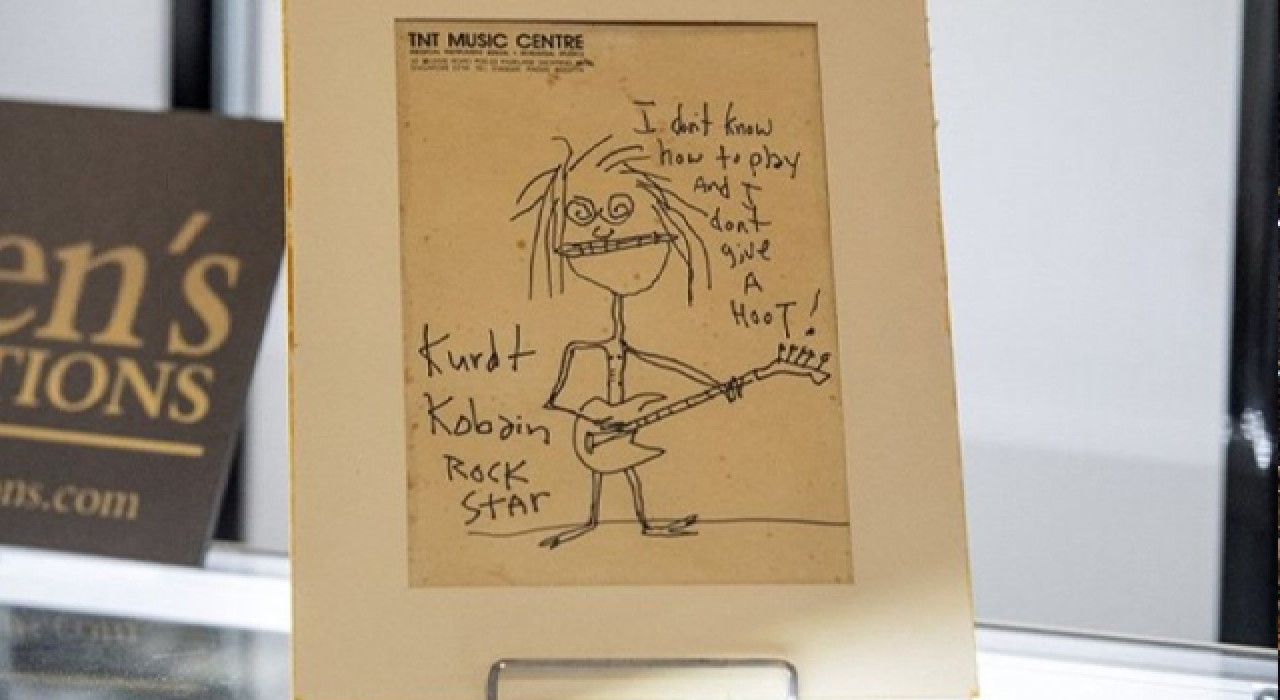 TNT MUSIC CENTRE
I don't know
how to play
And I
don't
give
A
HOOT!
Kurdt
Kobain
ROCK
STAR
en's
TIONS
ns.com